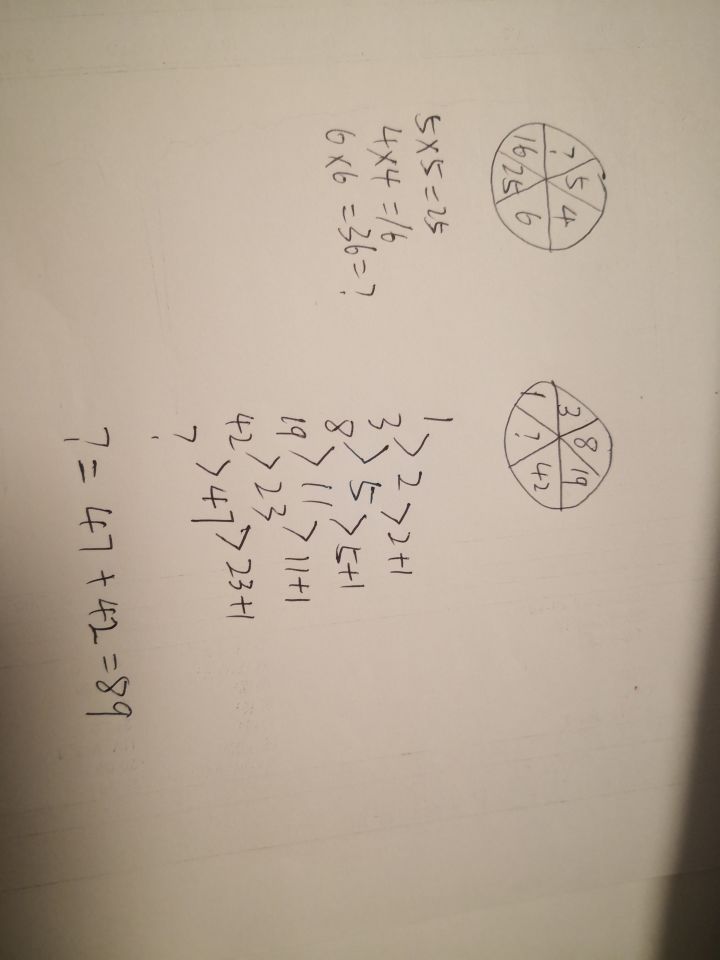 ? 5 4
16 25 6
3 8 19
1 ? 42
5×5=25
4×4=16
6×6=36=?
1
>2
3 >2+1
>5
8 >5+1
>11
19 >11+1
>23
42 >23+1
>47
?
?=47+42=89